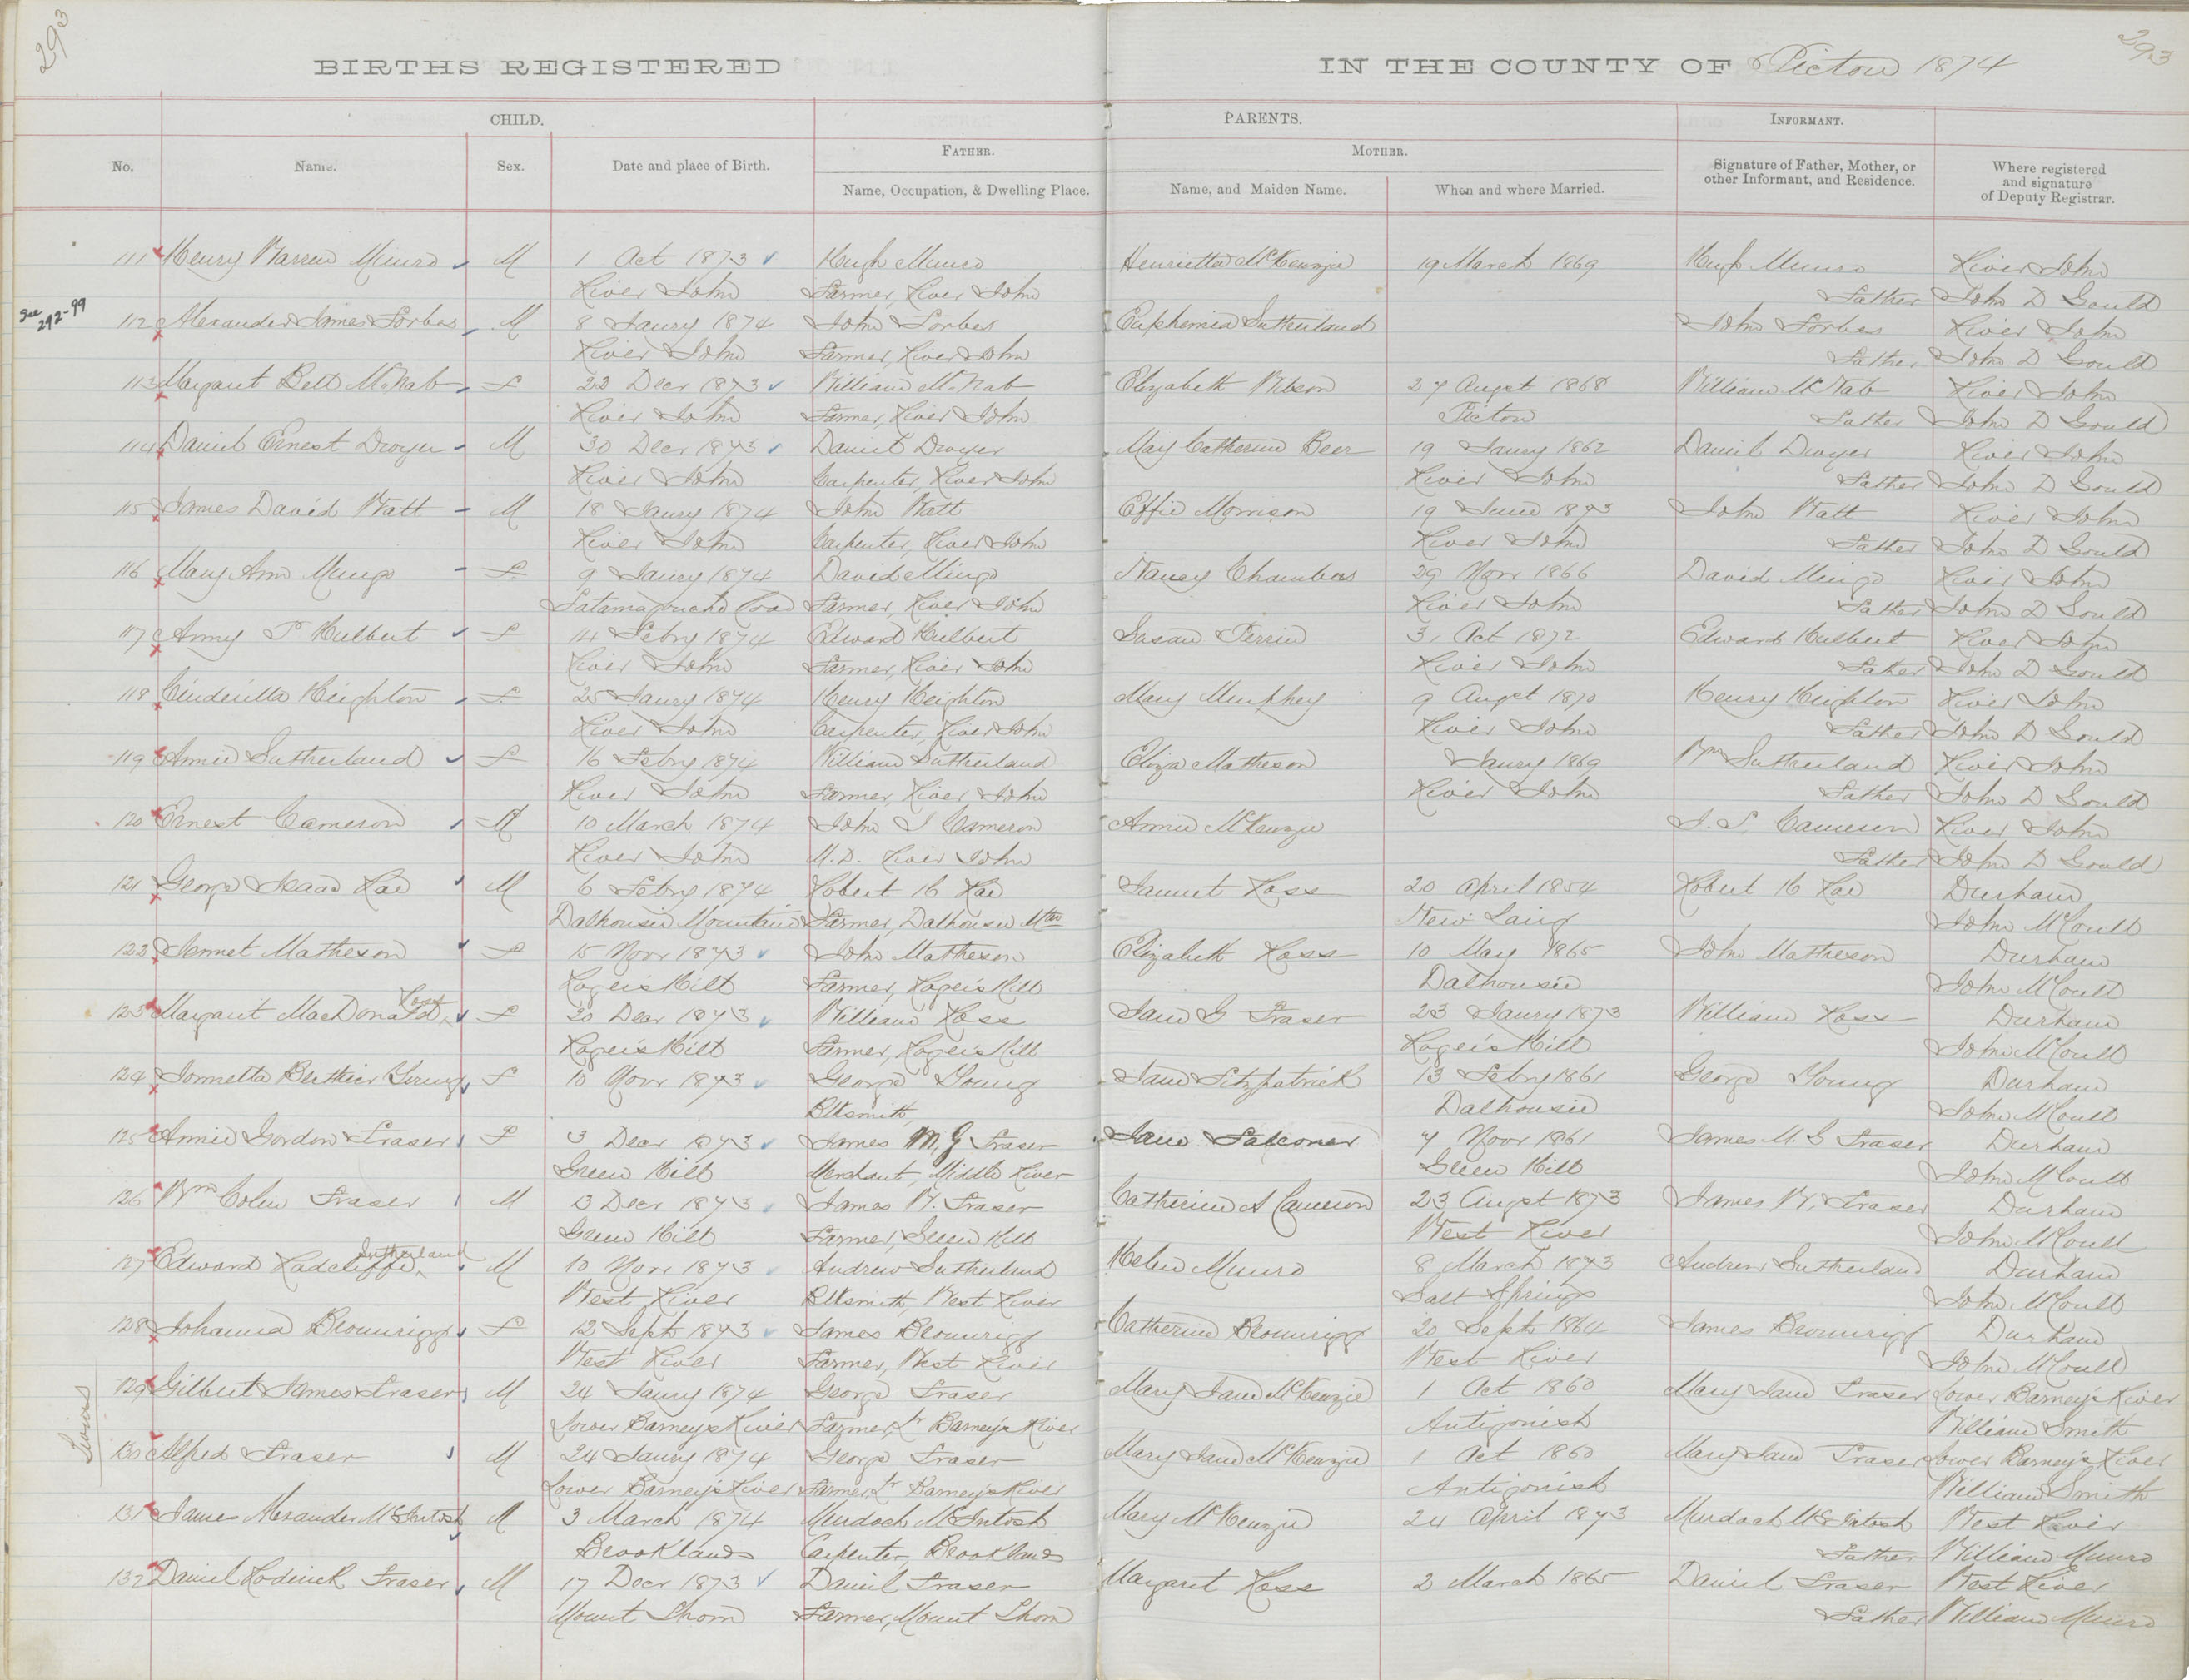 293
293
BIRTHS REGISTERED IN THE COUNTY OF Pictou 1874
CHILD. PARENTS. INFORMANT.
FATHER. MOTHER.
No. Name. Sex. Date and place of Birth. Name, Occupation, & Dwelling Place. Name, and Maiden Name. When and where Married. Signature of Father, Mother, or other Informant, and Residence. Where registered and signature of Deputy Registrar.
111 Henry Warren Munro M 1 Oct 1873 Hugh Munro Henrietta McKenzie 19 March 1869 Hugh Munro River John
River John Farmer, River John Father John D Gould
See 292-99
112 Alexander James Forbes M 8 Jany 1874 John Forbes Euphemia Sutherland John Forbes River John
River John Farmer, River John Father John D Gould
113 Margaret Bell McNab F 22 Decr 1873 William McNab Elizabeth Wilson 27 Augst 1868 William McNab River John
River John Farmer, River John Pictou Father John D Gould
114 Daniel Ernest Dwyer M 30 Decr 1873 Daniel Dwyer Mary Catherine Beer 19 Jany 1862 Daniel Dwyer River John
River John Carpenter, River John River John Father John D Gould
115 James David Watt M 18 Jany 1874 John Watt Effie Morrison 19 June 1873 John Watt River John
River John Carpenter, River John River John Father John D Gould
116 Mary Ann Mingo F. 9 Jany 1874 David Mingo Nancy Chambers 29 Novr 1866 David Mingo River John
Tatamagouche Road Farmer, River John River John Father John D Gould
117 Anny P Hulbert F 14 Febry 1874 Edward Hulbert Susan Perrin 31 Oct 1872 Edward Hulbert River John
River John Farmer, River John River John Father John D Gould
118 Cinderilla Heighton F. 25 Jany 1874 Henry Heighton Mary Murphey 9 Augst 1870 Henry Heighton River John
River John Carpenter, River John River John Father John D Gould
119 Annie Sutherland F 16 Febry 1874 William Sutherland Eliza Matheson Jany 1869 Wm Sutherland River John
River John Farmer, River John River John Father John D Gould
120 Ernest Cameron M 10 March 1874 John J Cameron Annie McKenzie J. J. Cameron River John
River John M.D. River John Father John D Gould
121 George Isaac Rae M 6 Febry 1874 Robert H Rae Jannet Ross 20 April 1854 Robert H Rae Durham
Dalhousie Mountain Farmer, Dalhousie Mtn New Lairg John McCoull
122 Jannet Matheson F 15 Novr 1873 John Matheson Elizabeth Ross 10 May 1865 John Matheson Durham
Rogers Hill Farmer, Rogers Hill Dalhousie John McCoull
123 Margaret MacDonald Ross F 20 Decr 1873 William Ross Jane G Fraser 23 Jany 1873 William Ross Durham
Rogers Hill Farmer, Rogers Hill Rogers Hill John McCoull
124 Jonnetta Young F 10 Novr 1873 George Young Jane Fitzpatrick 13 Febry 1861 George Young Durham
Blksmith, Dalhousie John McCoull
125 Annie Gordon Fraser F 3 Decr 1873 James M. G Fraser Jane Falconer 7 Novr 1861 James M. G Fraser Durham
Green Hill Merchant, Middle River Green Hill John McCoull
126 Wm Colin Fraser M 13 Decr 1873 James W. Fraser Catherine A Cameron 23 Augst 1873 James W. Fraser Durham
Green Hill Farmer, Green Hill West River John McCoull
127 Edward Radcliffe Sutherland M 10 Novr 1873 Andrew Sutherland Helen Munro 8 March 1873 Andrew Sutherland Durham
West River Blksmith, West River Salt Springs John McCoull
128 Johanna Brownrigg F 12 Sept 1873 James Brownrigg Catherine Brownrigg 20 Sept 1864 James Brownrigg Durham
West River Farmer, West River West River John McCoull
Twins
129 Gilbert James Fraser M 24 Jany 1874 George Fraser Mary Jane McKenzie 1 Oct 1860 Mary Jane Fraser Lower Barney's River
Lower Barneys River Farmer, Lr Barneys River Antigonish William Smith
130 Alfred Fraser M 24 Jany 1874 George Fraser Mary Jane McKenzie 1 Oct 1860 Mary Jane Fraser Lower Barney's River
Lower Barney's River Farmer, Lr Barneys River Antigonish William Smith
131 James Alexander McIntosh M 3 March 1874 Murdoch McIntosh Mary McKenzie 24 April 1873 Murdoch McIntosh West River
Brooklands Carpenter, Brooklands Father William Munro
132 Daniel Roderick Fraser M 17 Decr 1873 Daniel Fraser Margaret Ross 2 March 1865 Daniel Fraser West River
Mount Thom Farmer, Mount Thom Father William Munro